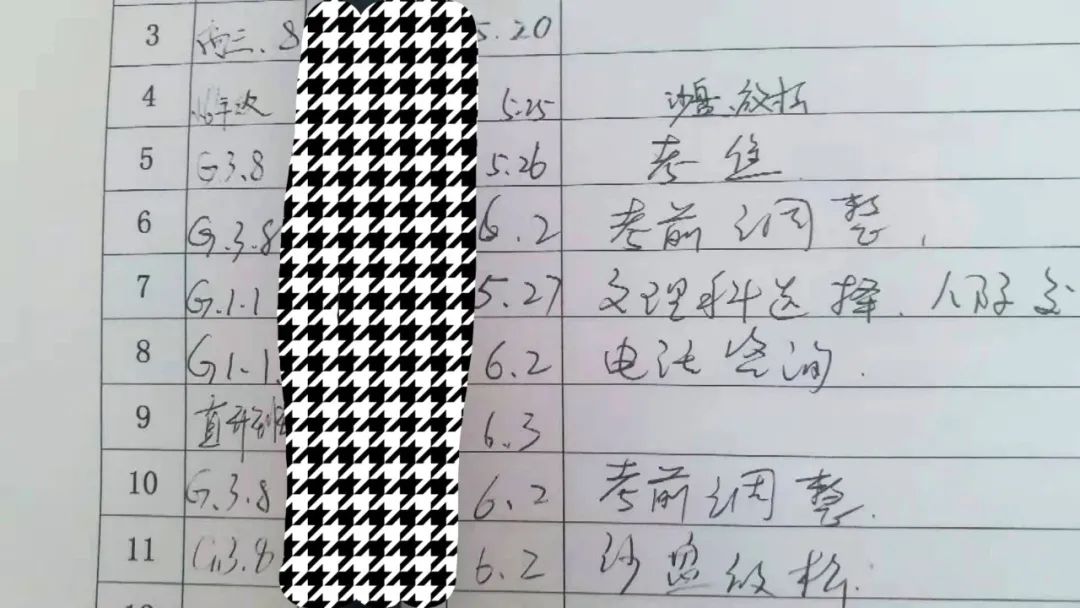 3 高三.8 5.20
4 5.25 沙盘、放松
5 G3.8 5.26 考焦.
6 G.3.8 6.2 考前调整.
7 G.1.1 5.27 文理科选择.人际交
8 G1.1. 6.2 电话咨询.
9 6.3
10 G.3.8 6.2 考前调整.
11 G.3.8 6.2 沙盘放松.